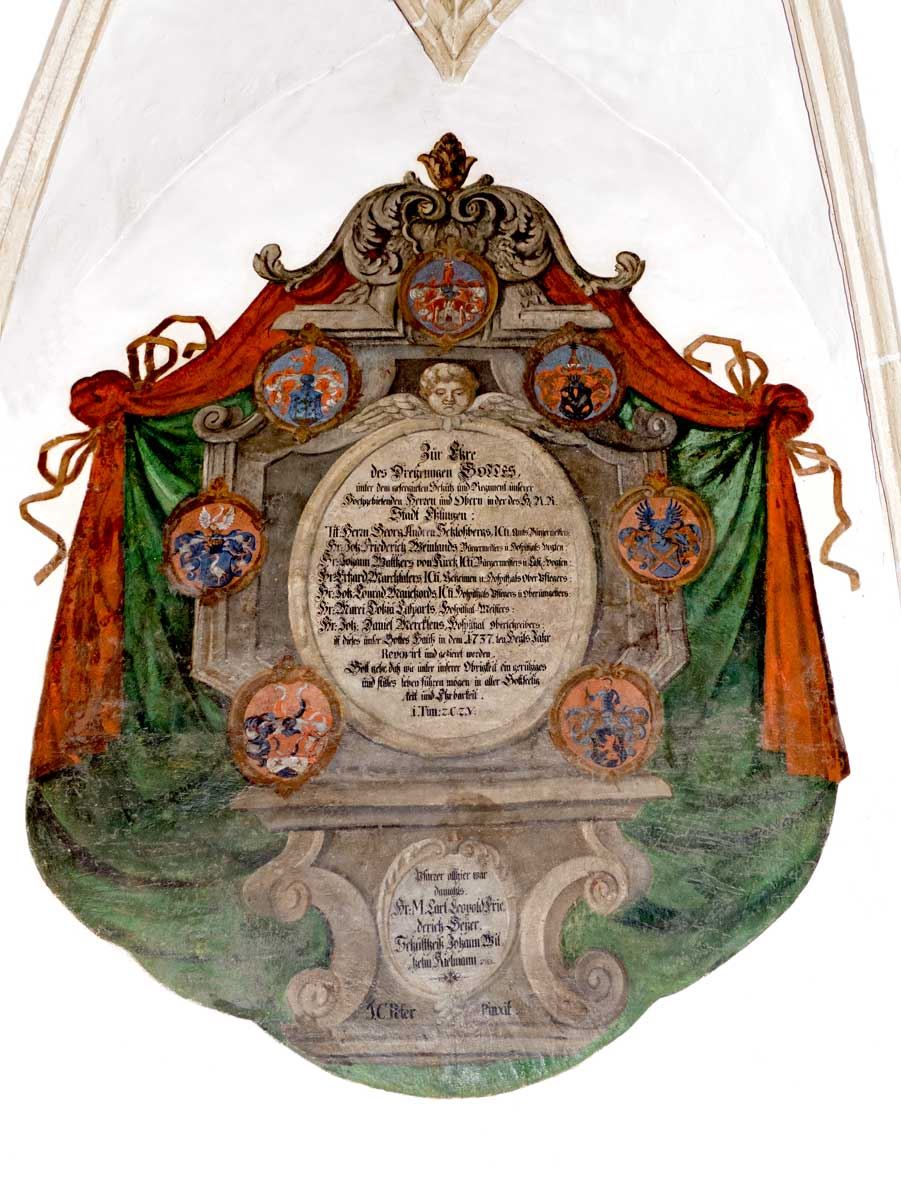 Zur Ehre
des Dreyeinigen GOTTES,
unter dem gesegneten Schutz und Regiment unserer
Hochgebietenden Herren und Obern in der des H. R. R.
Stadt Eßlingen:
Tit. Herrn Georg Andreä Schloßbergs, ICti Amts Bürgermeisters
Hr. Joh. Friederich Weinlands Bürgermeisters u. Hospithals Vogten
Hr. Johann Walthers von Kurrk ICti Bürgermeisters u. Vogten
Hr. Erhard Marchtalers ICti Geheimen u. Hospithals Ober Pflegers:
Hr. Joh. Conrad Mauchards ICti Hospithals Pflegers u. Oberumgelters:
Hr. Marci Tobiä Ekharts Hospithal Meisters:
Hr. Joh. Daniel Mercklens, Hospithal Oberschreibers:
ist dieses unser Gottes Hauß in dem 1737. ten Heyls Jahr
Renovirt und gezieret worden.
Gott gebe, daß wir unter unserer Obrigkeit ein geruhiges
und stilles leben führen mögen in aller Gottseelig
keit und Ehrbarkeit.
1. Tim: 2. C. 2. V.
Pfarrer allhier war
damahls.
Hr: M. Carl Leopold Frie
derich Seyer.
Schultheiß Johann Wil
helm Kielmann
J. C. Peter Pinxit.